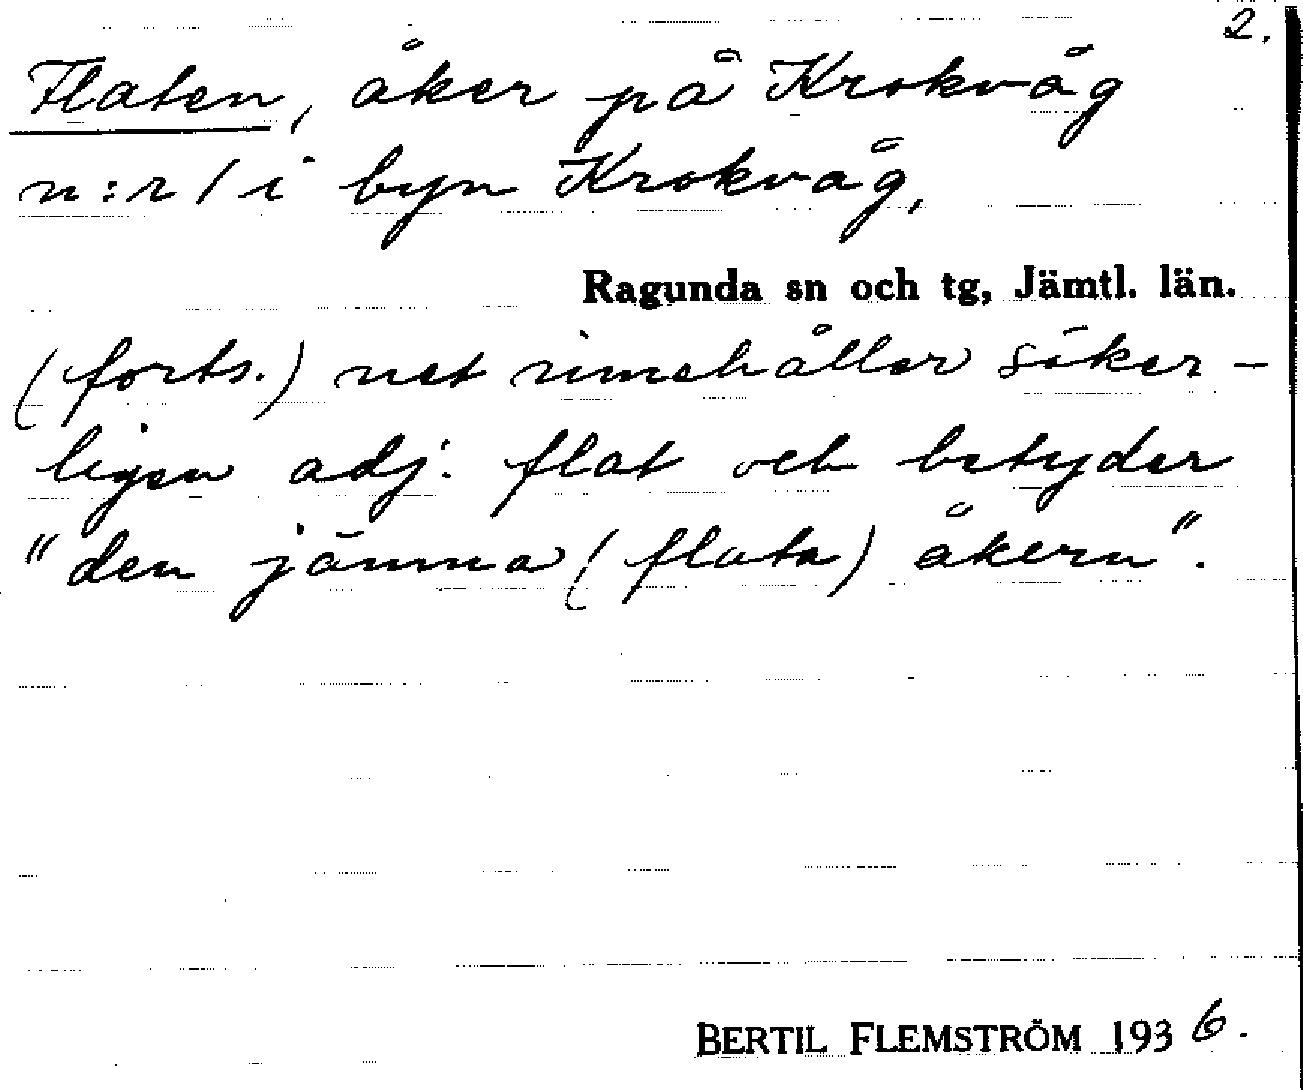 2.
Flaten, åker på Krokvåg
n:r 1 i byn Krokvåg,
Ragunda sn och tg, Jämtl. län.
(forts.) net innehåller säker-
ligen adj. flat och betyder
"den jämna (flata) åkern".
BERTIL FLEMSTRÖM 1936.